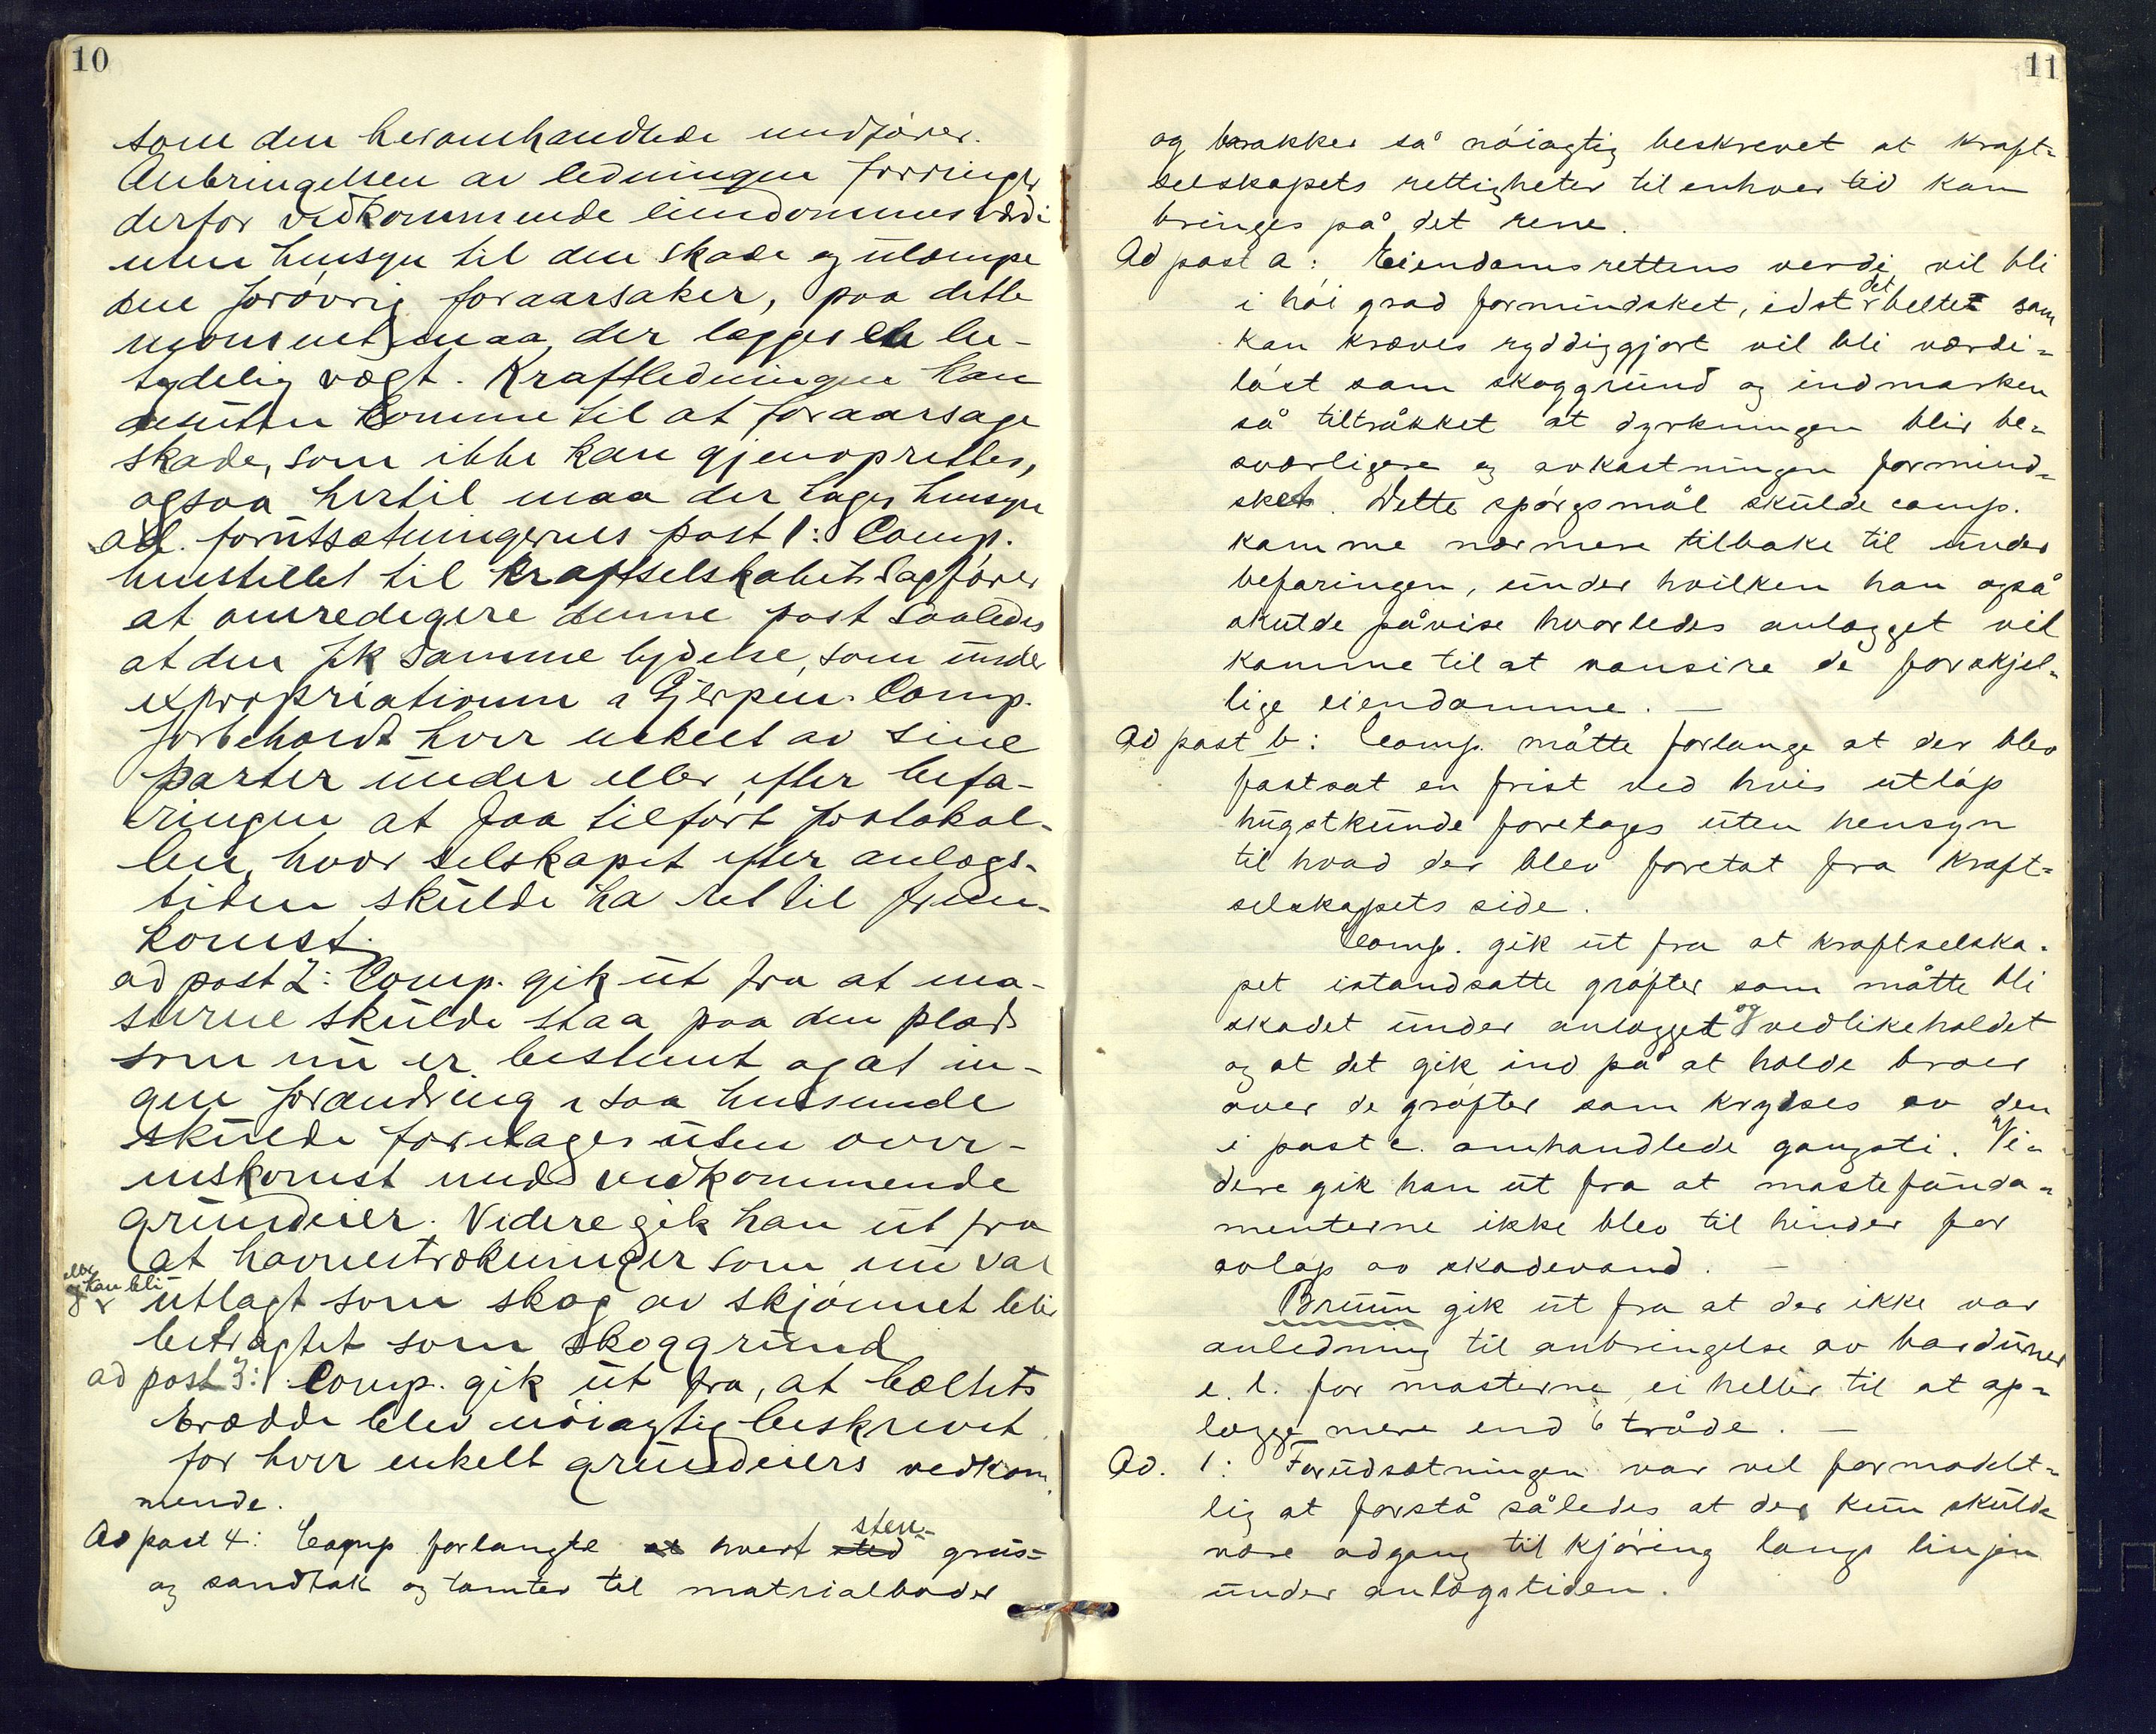 10
som den heromhandlede medfører.
Anbringelsen av ledningen forringer
derfor vedkommende eiendommes værdi
uten hensyn til den skade og ulæmpe
den forøvrig foraarsaker, paa dette
moment maa der lægges en be-
tydelig vægt. Kraftledningen kan
desuten komme til at foraarsage
skade, som ikke kan gjenoprettes,
ogsaa hertil maa der tages hensyn
ad. forutsætningernes post 1: Comp.
henstillet til Kraftselskabets Sagfører
at omredigere denne post saaledes
at den fik samme lydelse, som under
expropriationen i Gjerpen. Comp.
forbeholdt hver enkelt av sine
parter under eller efter befa-
ringen at faa tilført protokol-
len, hvor selskapet efter anlægs-
tiden skulde ha ret til frem-
komst.
ad post 2: Comp. gik ut fra at ma-
sterne skulde staa paa den plads
som nu er bestemt og at in-
gen forandring i saa henseende
skulde foretages uten over-
enskomst med vedkommende
grundeier. Videre gik han ut fra
at havnestrækninger som nu var
eller
og kan bli
utlagt som skog av skjønnet blir
betragtet som skoggrund
ad post 3: Comp. gik ut fra, at bæltets
bredde blev nøiagtig beskrevet
for hver enkelt grundeiers vedkom
mende.
Ad post 4: Comp forlangte at hvert sted sten- grus-
og sandtak og tomter til matrialboder
11
og barakker så nöiagtig beskrevet at kraft-
selskapets rettigheter til enhver tid kan
bringes på det rene.
Ad post a: Eiendomsrettens verdi vil bli
i höi grad formindsket, idet det beltet som
kan kræves ryddiggjort vil bli værdi-
löst som skoggrund og indmarken
så tiltråkket at dyrkningen blir be-
sværligere og avkastningen formind-
sket. Dette spörgsmål skulde comp.
komme nærmere tilbake til under
befaringen, under hvilken han også
skulde påvise hvorledes anlægget vil
komme til at vansire de forskjel-
lige eiendomme. —
Ad post b: Comp. måtte forlange at der blev
fastsat en frist ved hvis utlöp
hugst kunde foretages uten hensyn
til hvad der blev foretat fra kraft-
selskapets side.
Comp. gik ut fra at kraftselska-
pet istandsatte gröfter som måtte bli
skadet under anlægget og vedlikeholdet
og at det gik ind på at holde broer
over de gröfter som krydses av den
i post c. omhandlede gangsti. Vi-
dere gik han ut fra at mastefunda-
menterne ikke blev til hinder for
avlöp av skadevand. —
Bruun gik ut fra at der ikke var
anledning til anbringelse av barduner
e. l. for masterne ei heller til at op-
lægge mere end 6 tråde. —
Ad. 1: Forudsætningen var vel formodent-
lig at forstå således at der kun skulde
være adgang til kjöring langs linjen
under anlægstiden.